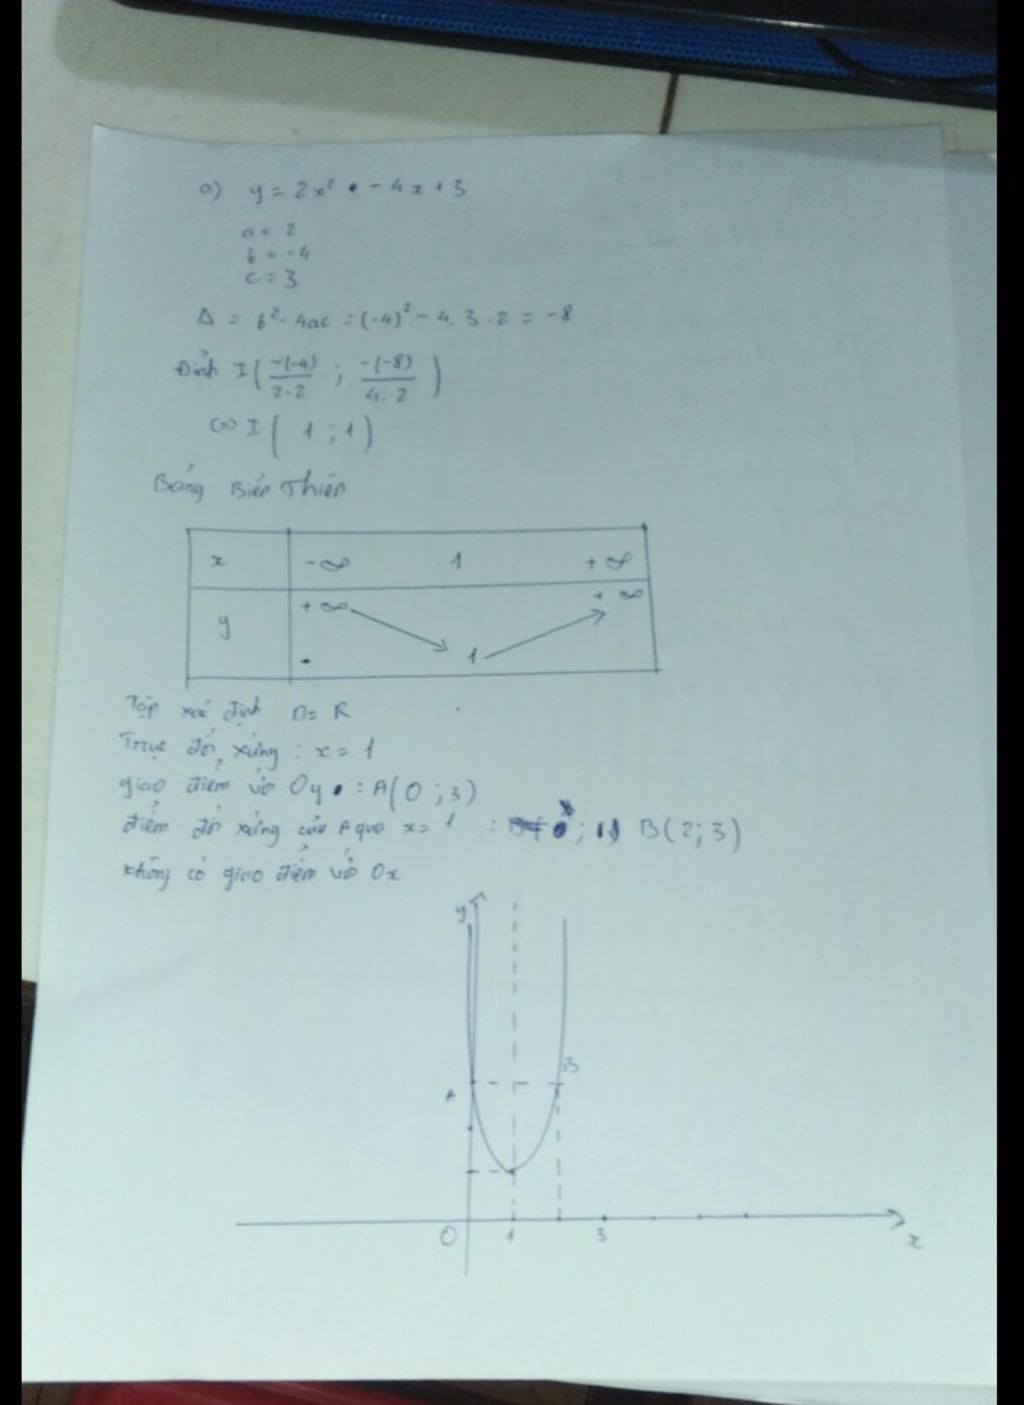 a) y = 2x² - 4x + 3
a = 2
b = -4
c = 3
Δ = b² - 4ac = (-4)² - 4.3.2 = -8
Đỉnh I( -(-4)/2.2 ; -(-8)/4.2 )
(=) I( 1 ; 1)
Bảng Biến Thiên
x -∞ 1 +∞
y +∞ 1 +∞
Tập xác định D= R
Trục đối xứng : x = 1
giao điểm với Oy : A(0 ; 3)
điểm đối xứng của A qua x= 1 : B(2; 3)
không có giao điểm với Ox
y
B
A
O 1 3 x